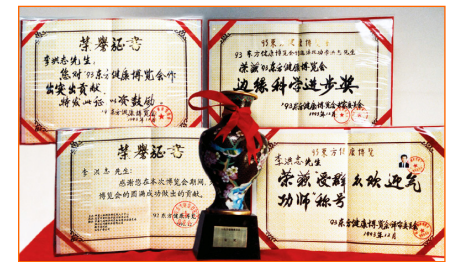 荣誉证书
李洪志先生:
您对'93东方健康博览会作
出突出贡献,
特发此证 以资鼓励。
'93东方健康博览会
93东方健康博
93东方健康博览会 李洪志先生
荣获'93东方健康博览会
边缘科学进步奖
'93东方健康博览会
1993年12月
荣誉证书
李洪志先生:
感谢您在本次博览会期间,为
博览会的圆满成功做出的贡献。
'93东方
93东方健康博览
李洪志先生
荣获受群众欢迎气
功师称号
'93东方健康博览会
1993年12月